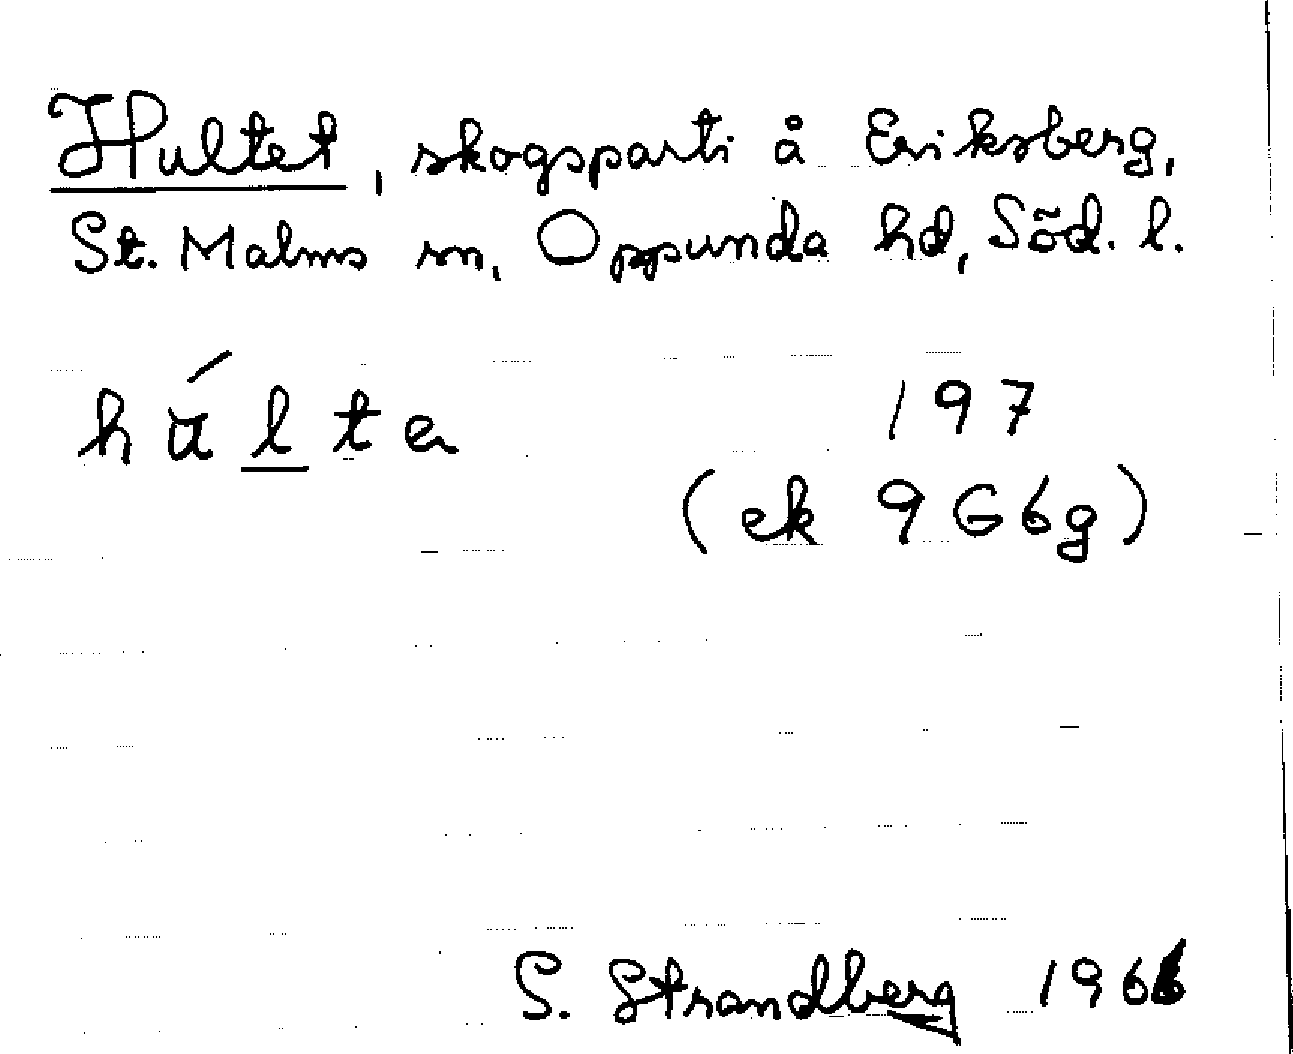 Hultet, skogsparti å Eriksberg,
St. Malms sn, Oppunda hd, Söd. l.
197
(ek 9G6g)
S. Strandberg 1966